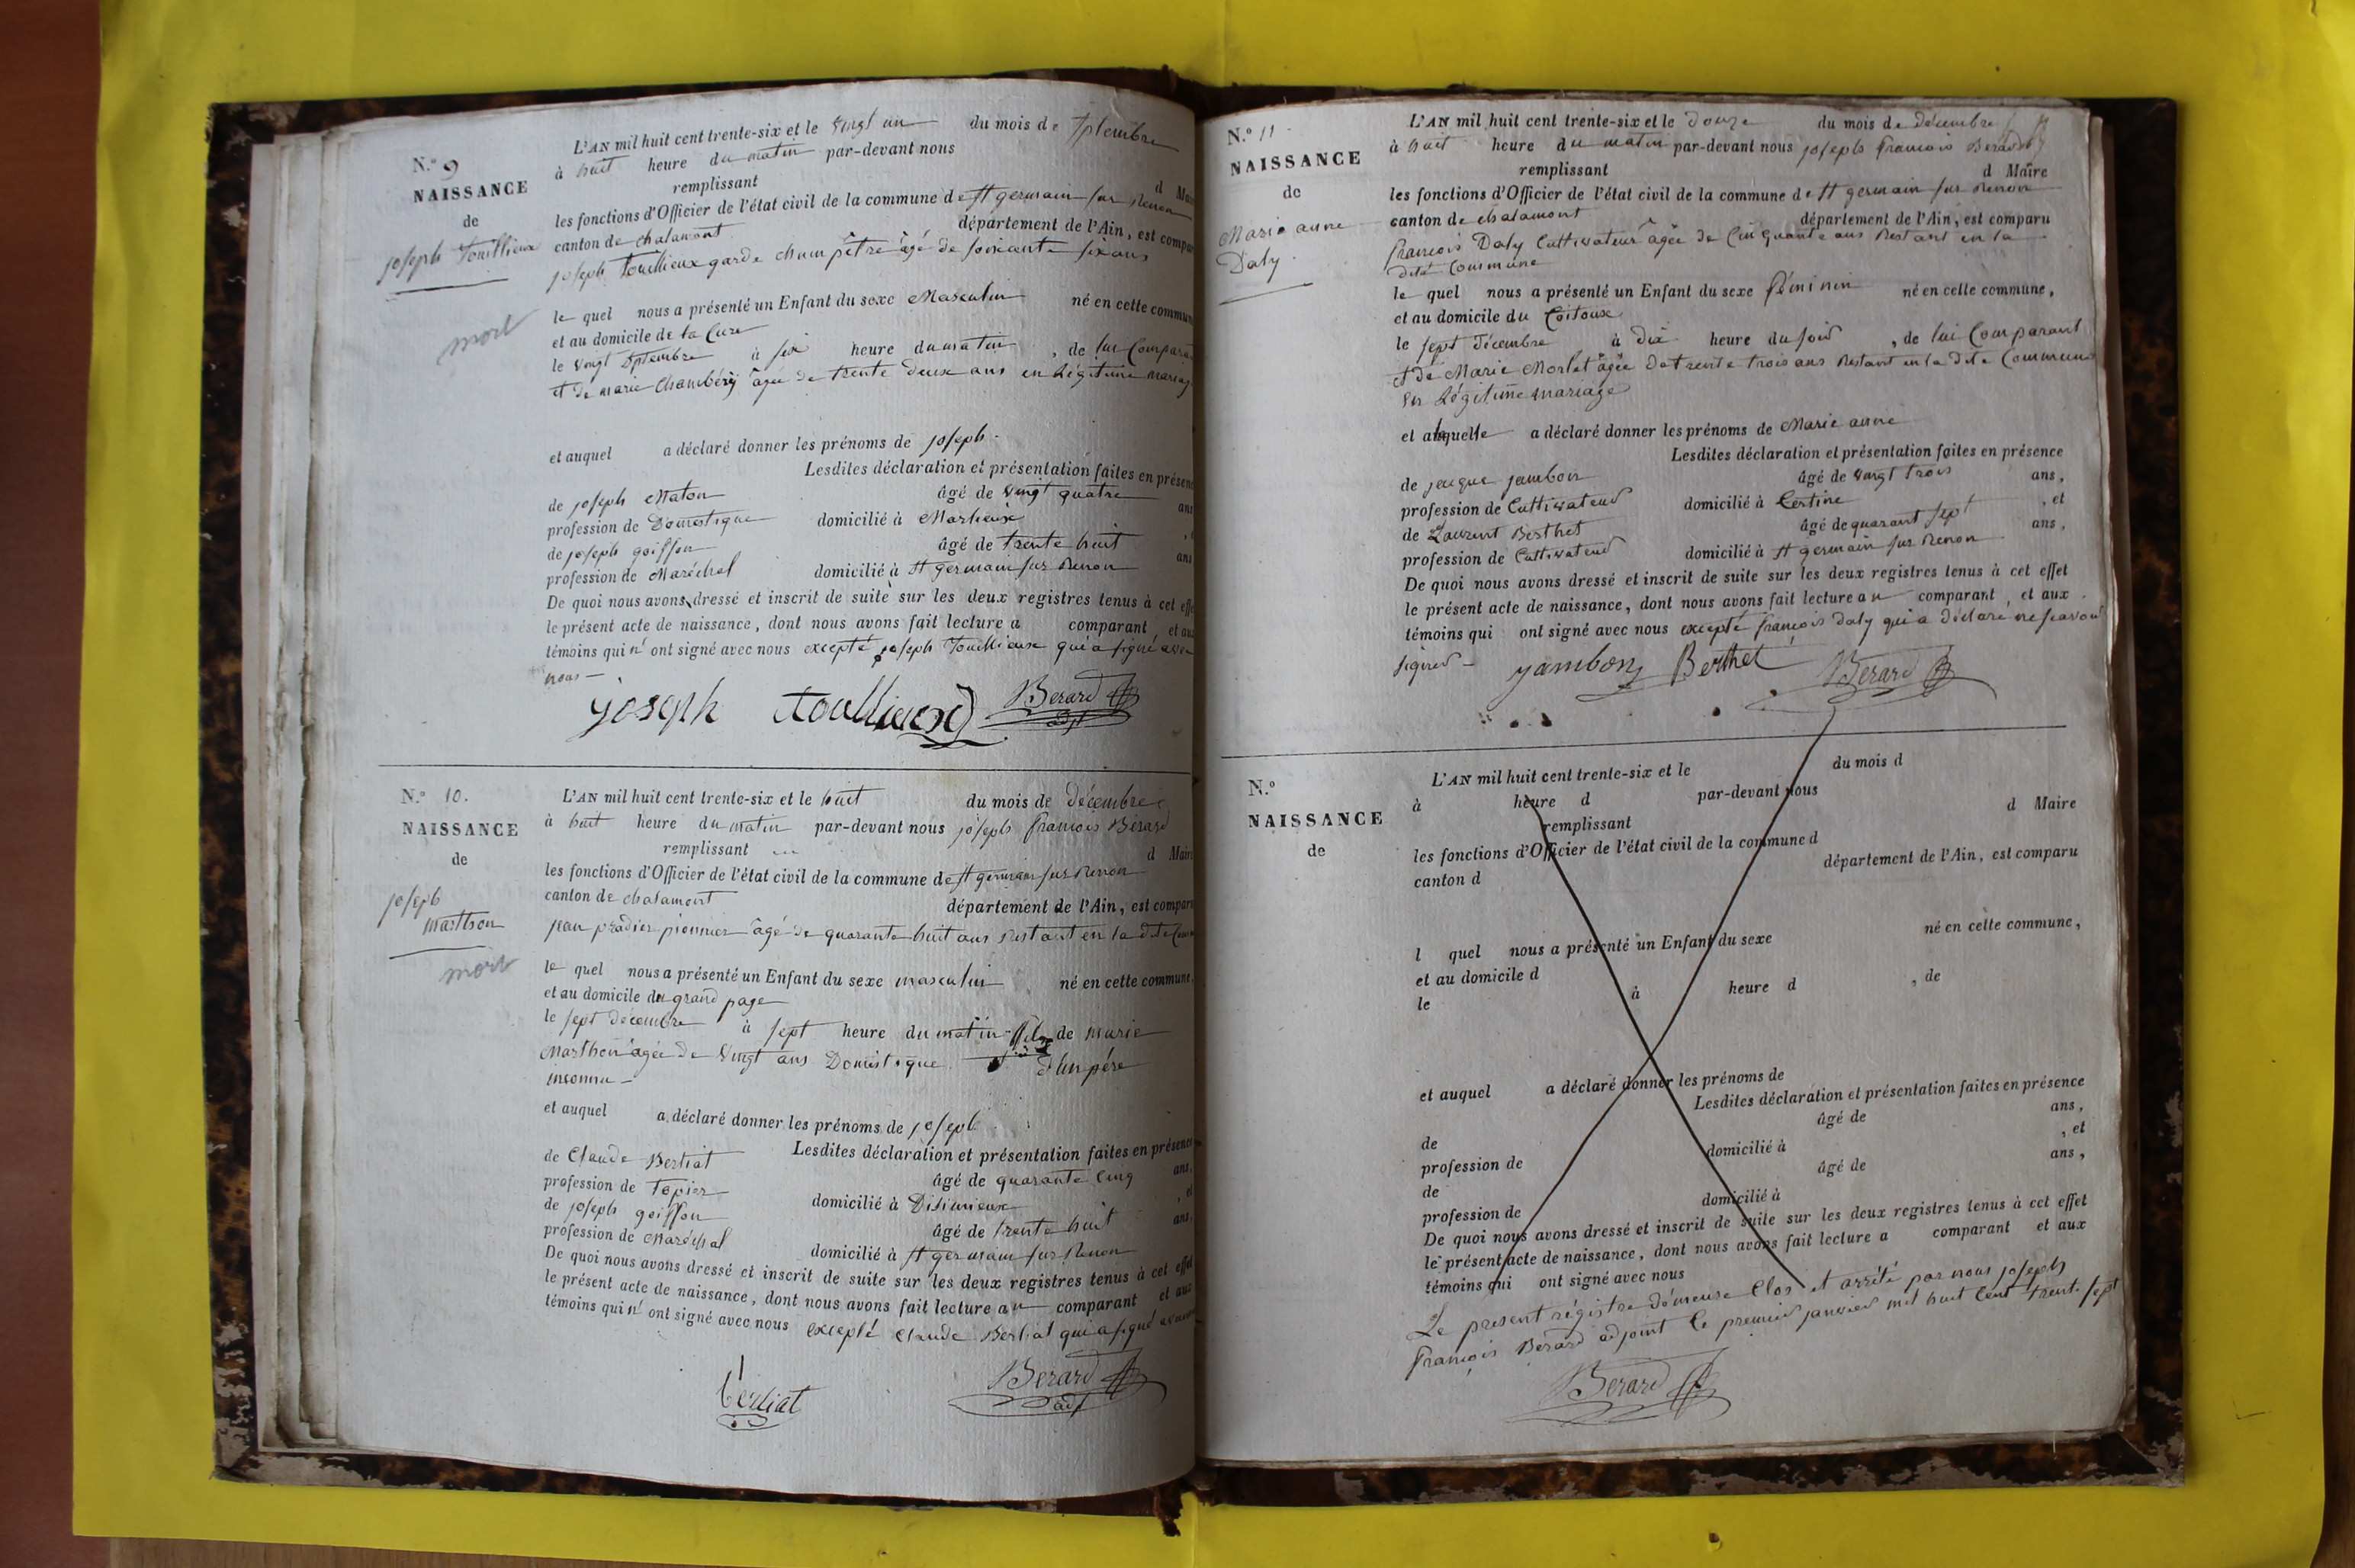 N.º 9
NAISSANCE
de
joseph Touillieux
mort
L'AN mil huit cent trente-six et le vingt un du mois de 7ptembre
à huit heure du matin par-devant nous
remplissant d Mai
les fonctions d'Officier de l'état civil de la commune de st germain sur Renon
canton de chalamont département de l'Ain, est compa
joseph Touillieux garde champêtre âgé de soixante six ans
le quel nous a présenté un Enfant du sexe Masculin né en cette commun
et au domicile de la Cure
le vingt 7ptembre à six heure du matin, de lui Compara
et de marie Chambéry âgée de trente deux ans en Légitime mariag
et auquel a déclaré donner les prénoms de joseph.
Lesdites déclaration et présentation faites en présen
de joseph Maton âgé de vingt quatre ans
profession de Domestique domicilié à Marlieux
de joseph goiffon âgé de trente huit ans
profession de Maréchal domicilié à st germain sur Renon
De quoi nous avons dressé et inscrit de suite sur les deux registres tenus à cet effe
le présent acte de naissance, dont nous avons fait lecture a comparant et au
témoins qui n' ont signé avec nous excepté joseph Touillieux qui a signé avec
nous —
joseph toullieux Berard adjt
N.º 10.
NAISSANCE
de
joseph
marthon
mort
L'AN mil huit cent trente-six et le huit du mois de décembre
à huit heure du matin par-devant nous joseph francois Berard
remplissant d Mair
les fonctions d'Officier de l'état civil de la commune de st germain sur Renon
canton de chalamont département de l'Ain, est compar
jean pradier pionnier âgé de quarante huit ans Restant en la dite Com
le quel nous a présenté un Enfant du sexe masculin né en cette commune
et au domicile du grand page
le sept décembre à sept heure du matin fils de marie
Marthon âgée de vingt ans Domestique d'un père
inconnu —
et auquel a déclaré donner les prénoms de joseph
Lesdites déclaration et présentation faites en présence
de Claude Berliat âgé de quarante cinq ans,
profession de Tapier domicilié à Disimieux, et
de joseph goiffon âgé de trente huit ans,
profession de Maréchal domicilié à st germain sur Renon
De quoi nous avons dressé et inscrit de suite sur les deux registres tenus à cet effet
le présent acte de naissance, dont nous avons fait lecture au comparant et aux
témoins qui n' ont signé avec nous excepté Claude Berliat qui a signé avec
berliat Berard adj
N.º 11
NAISSANCE
de
Marie anne
Daly.
L'AN mil huit cent trente-six et le douze du mois de décembre
à huit heure du matin par-devant nous joseph francois Berard
remplissant d Maire
les fonctions d'Officier de l'état civil de la commune de st germain sur Renon
canton de chalamont département de l'Ain, est comparu
francois Daly Cultivateur âgée de Cinquante ans Restant en la
dite Commune
le quel nous a présenté un Enfant du sexe féminin né en cette commune,
et au domicile du Coitoux
le sept décembre à dix heure du soir, de lui Comparant
et de Marie Morlet âgée de trente trois ans Restant en la dite Commune
en Légitime mariage
et alaquelle a déclaré donner les prénoms de Marie anne
Lesdites déclaration et présentation faites en présence
de jacque jambon âgé de vingt trois ans,
profession de Cultivateur domicilié à Certine, et
de Laurent Berthet âgé de quarant sept ans,
profession de Cultivateur domicilié à st germain sur Renon
De quoi nous avons dressé et inscrit de suite sur les deux registres tenus à cet effet
le présent acte de naissance, dont nous avons fait lecture au comparant, et aux
témoins qui ont signé avec nous excepté francois Daly qui a déclaré ne savoir
signer —
yambon Berthet Berard
N.º
NAISSANCE
de
L'AN mil huit cent trente-six et le du mois d
à heure d par-devant nous
remplissant d Maire
les fonctions d'Officier de l'état civil de la commune d
canton d département de l'Ain, est comparu
l quel nous a présenté un Enfant du sexe né en cette commune,
et au domicile d
le à heure d, de
et auquel a déclaré donner les prénoms de
Lesdites déclaration et présentation faites en présence
de âgé de ans,
profession de domicilié à, et
de âgé de ans,
profession de domicilié à
De quoi nous avons dressé et inscrit de suite sur les deux registres tenus à cet effet
le présent acte de naissance, dont nous avons fait lecture a comparant et aux
témoins qui ont signé avec nous
Le present régistre démeure Clos et arrêté par nous joseph
francois Berard adjoint le premier janvier mil huit Cent trente sept
Berard